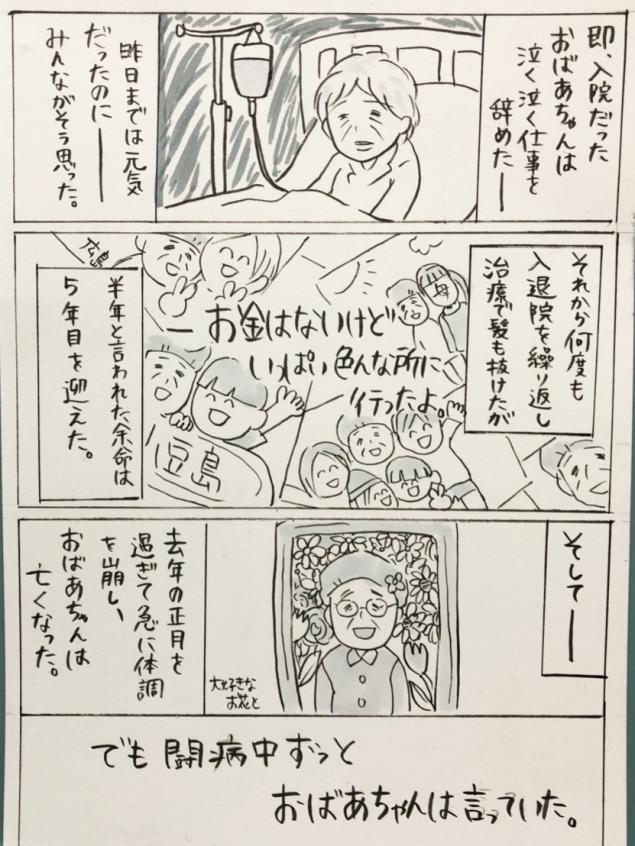 即、入院だった
おばあちゃんは
泣く泣く仕事を
辞めた―
昨日までは元気
だったのに――
みんながそう思った。
それから何度も
入退院を繰り返し
治療で髪も抜けたが
―お金はないけど
いっぱい色んな所に
行ったよ。
豆島
半年と言われた余命は
5年目を迎えた。
そして――
大好きな
お花と
去年の正月を
過ぎて急に体調
を崩し、
おばあちゃんは
亡くなった。
でも闘病中ずっと
おばあちゃんは言っていた。